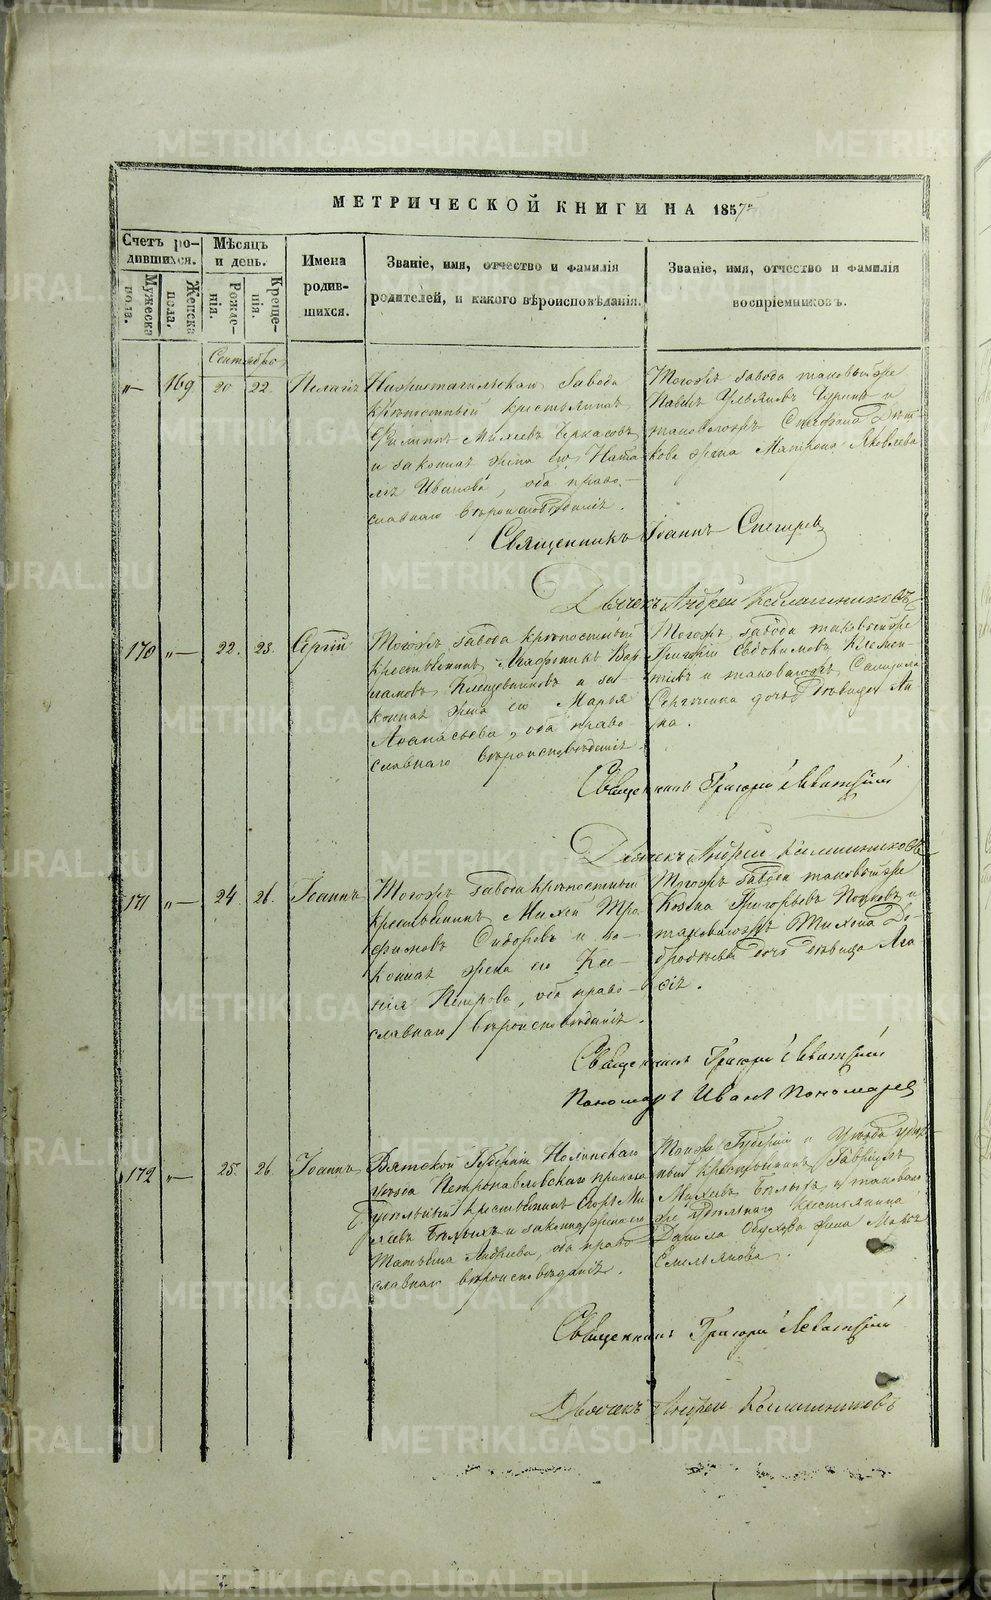 МЕТРИЧЕСКОЙ КНИГИ НА 1857
Счетъ ро-
дившихся.
Мужеска
пола.
Женска
пола.
Мѣсяцъ
и день.
Рожде-
нія.
Креще-
нія.
Имена
родив-
шихся.
Званіе, имя, отчество и фамилія
родителей, и какого вѣроисповѣданія.
Званіе, имя, отчество и фамилія
воспріемниковъ.
Сентябрь
169 20 22 Пелагія
завода
крѣпостный крестьянинъ
Филиппъ Черкасовъ
и законная жена его Ната
лія Иванова, оба право-
славнаго вѣроисповѣданія.
Тогожъ завода таковыйже
Павелъ Ульяновъ и
таковагожъ Стефана
кова жена Матрона Яковлева
Священникъ Іоаннъ Снегирев
Дьячекъ Андрей Калашниковъ
170 22. 23. Сергій
Тогожъ завода крѣпостный
крестьянинъ Вар
ламовъ и за-
конная жена его Марья
Аѳанасьева, оба право-
славнаго вѣроисповѣданія.
Тогожъ завода таковыйже
Григорій Евдокимовъ Клемен-
тьевъ и таковагожъ
дочь дѣвица Ан
на.
Священникъ Григорій Левитскій
Дьячекъ Андрей Калашниковъ
171 24. 26. Іоаннъ
Тогожъ завода крѣпостный
крестьянинъ Михей Тро
фимовъ Сидоровъ и за-
конная жена его Ксе-
нія Петрова, оба право-
славнаго вѣроисповѣданія.
Тогожъ завода таковыйже
Козма Григорьевъ Поповъ и
таковагожъ Тихона
дочь дѣвица Ага
ѳія.
Священникъ Григорій Левитскій
Пономарь Иванъ Пономарев
172 25. 26. Іоаннъ
Вятской Губерніи Нолинскаго
уѣзда Петропавловскаго прихода
удѣльный крестьянинъ Егоръ Ми
хѣевъ Бѣлыхъ и законная жена его
Татьяна Андреева, оба право
славнаго вѣроисповѣданія.
Тойже Губерніи и Уѣзда удѣль
ный крестьянинъ Гавріилъ
Михѣевъ Бѣлыхъ, и таковаго
же удѣльнаго крестьянина
Данила Обухова жена
Емельянова.
Священникъ Григорій Левитскій
Дьячекъ Андрей Калашниковъ
METRIKI.GASO-URAL.RU